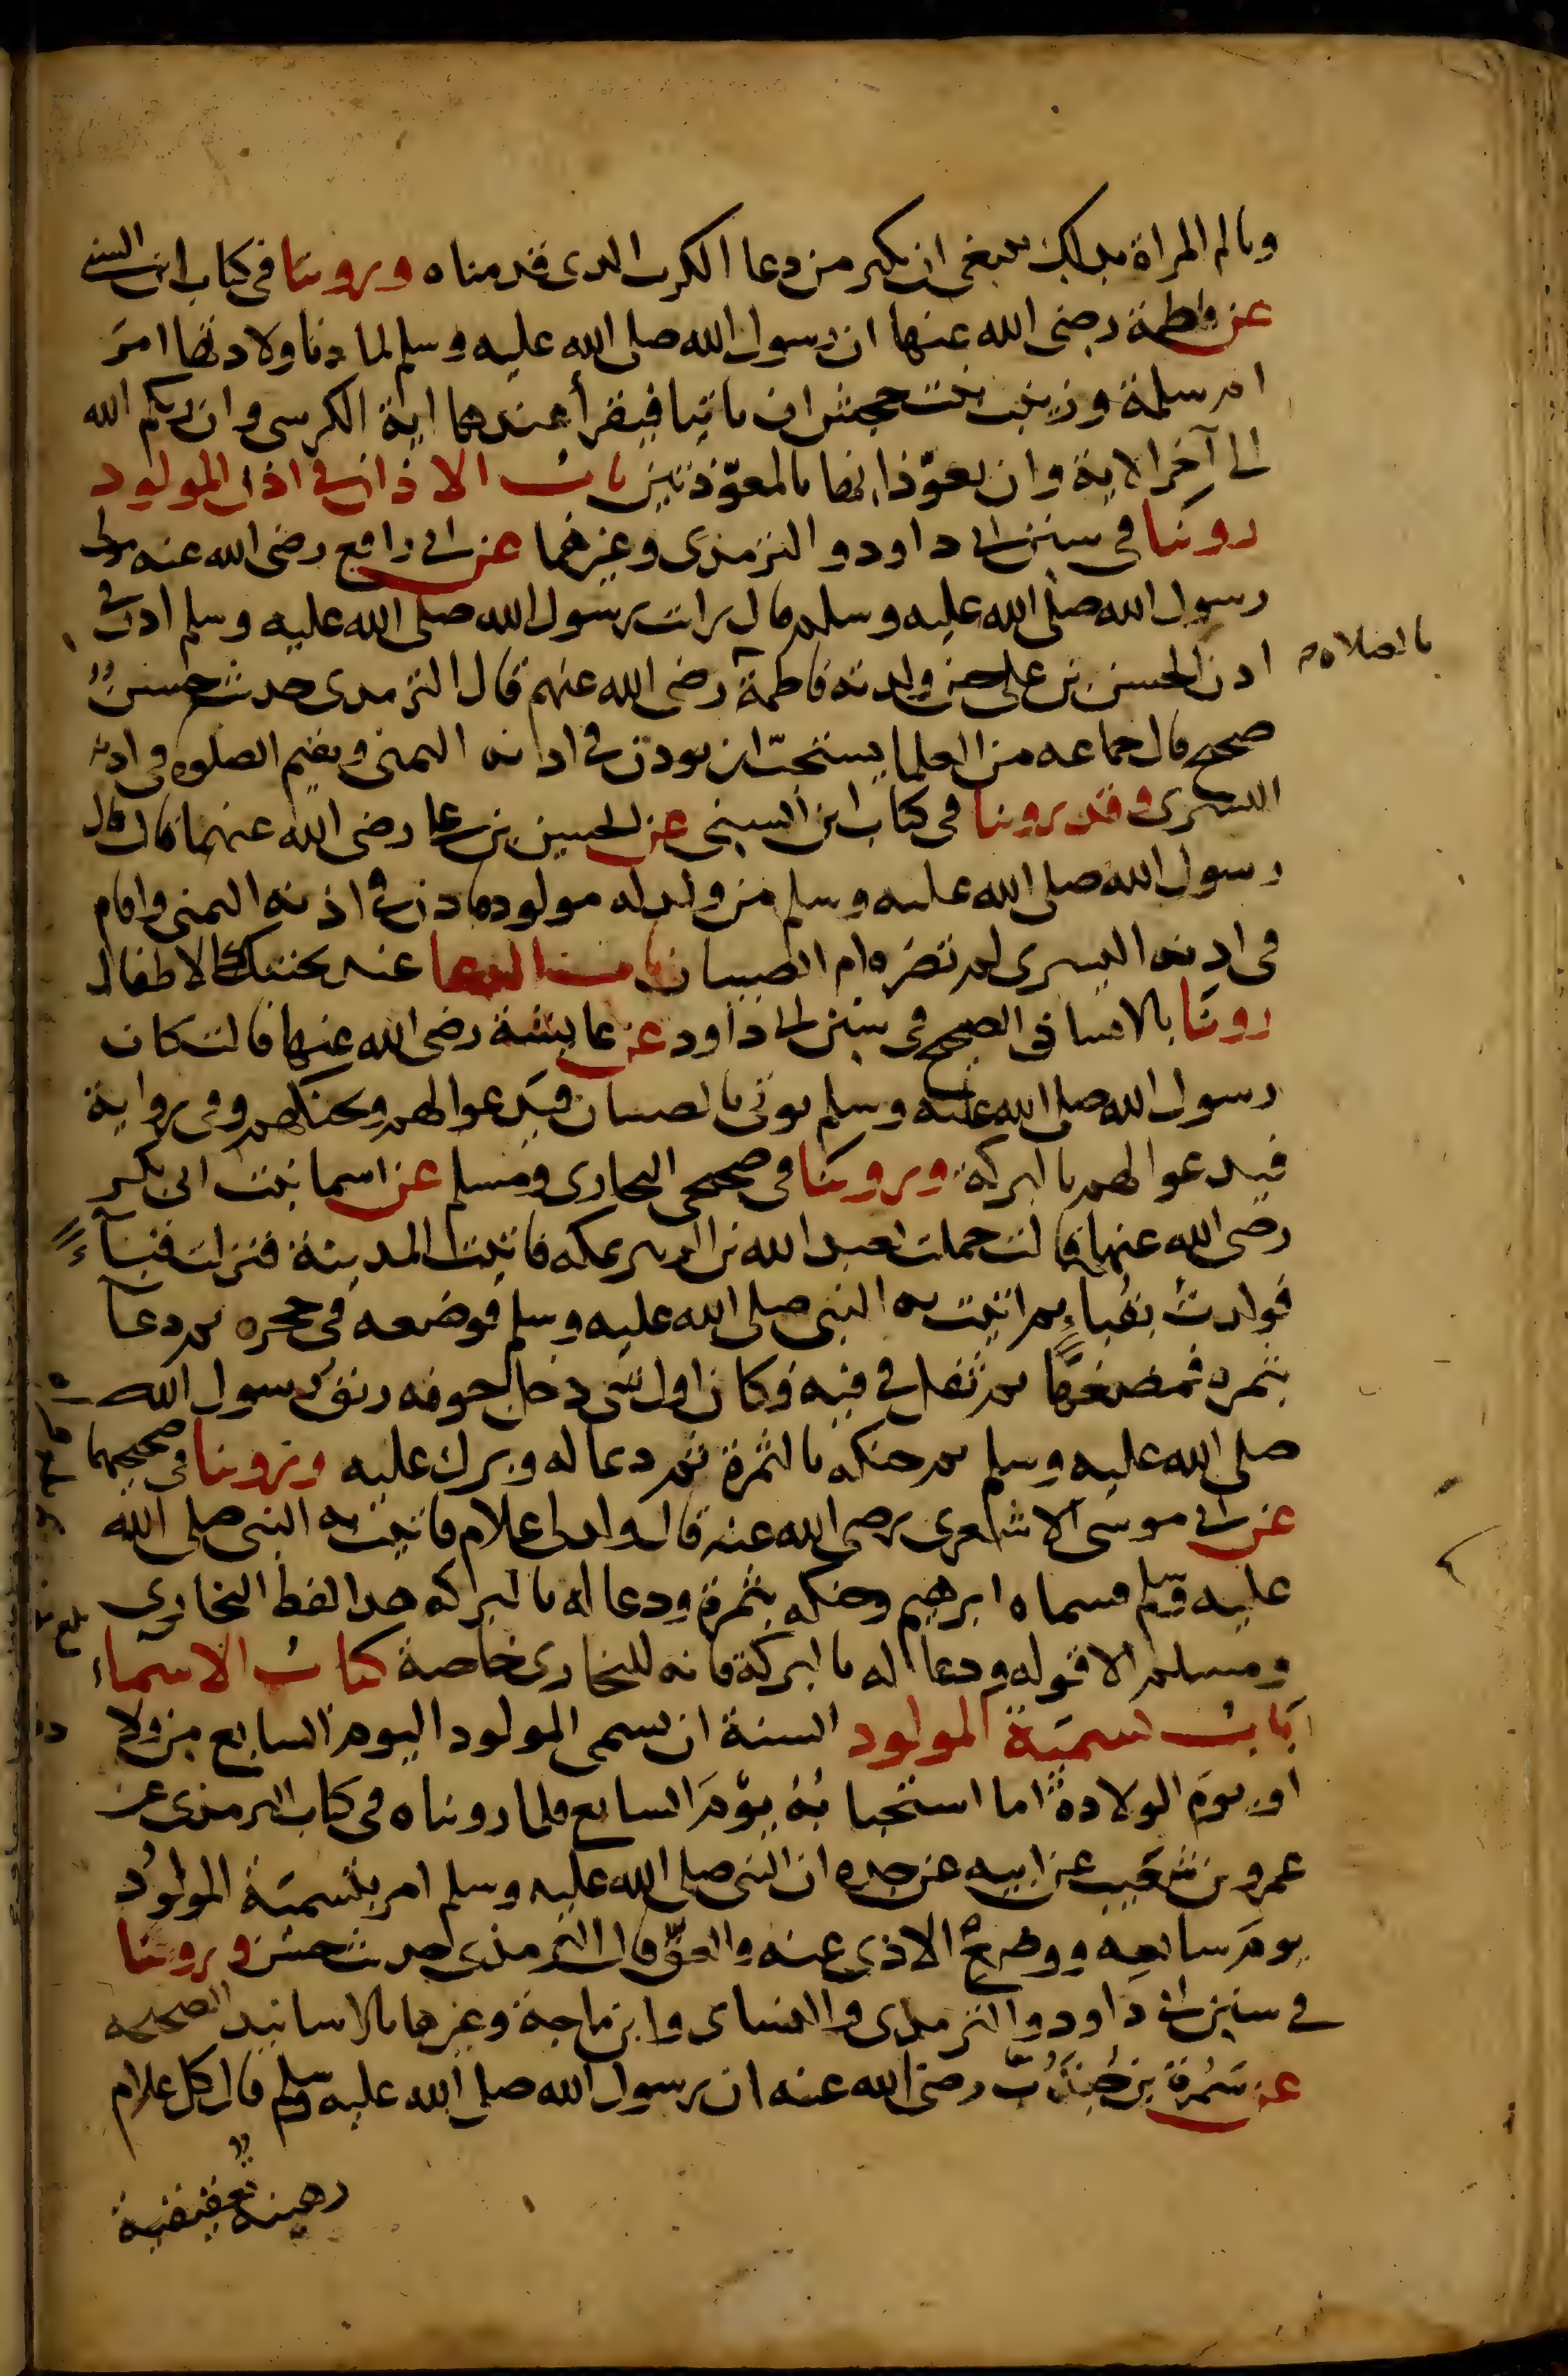 وتالم المراة بذلك ينبغي ان يكثر من دعا الكرب الذي قدمناه وروينا في كتاب ابن السني
عن فاطمة رضى الله عنها ان رسول الله صلى الله عليه وسلم لما دنا ولادتها امر
ام سلمة وزينب بنت جحش ان ياتيا فيقرأ عندها اية الكرسى وان ربكم الله
الى آخر الاية وان يعوّذانها بالمعوّذتين باب الاذان في اذن المولود
روينا في سنن ابي داود والترمذى وغيرهما عن ابي رافع رضى الله عنه مولى
رسول الله صلى الله عليه وسلم قال رايت رسول الله صلى الله عليه وسلم اذن في
اذن الحسن بن على حين ولدته فاطمة رضى الله عنهم قال الترمذى حديث حسن
بالصلاة
صحيح قال جماعه من العلما يستحبّ ان يوذن في اذنه اليمنى ويقيم الصلوه في اذنه
اليسرى وقد روينا في كتاب ابن السنى عن الحسين بن على رضى الله عنهما قال قال
رسول الله صلى الله عليه وسلم من ولد له مولود فاذن في اذنه اليمنى واقام
في اذنه اليسرى لم تضره ام الصبيان باب الدعا عند تحنيك الاطفال
روينا بالاسناد الصحيح في سنن ابي داود عن عايشة رضى الله عنها قالت كان
رسول الله صلى الله عليه وسلم يوتى بالصبيان فيدعوا لهم ويحنكهم وفي رواية
فيدعوا لهم بالبركة وروينا في صحيحى البخارى ومسلم عن اسما بنت ابى بكر
رضى الله عنها قالت حملت بعبد الله بن الزبير بمكه فاتيت المدينة فنزلت قباء
فولدت بقباء ثم اتيت به النبى صلى الله عليه وسلم فوضعه في حجره ثم دعا
بتمرة فمضغها ثم تفل في فيه فكان اول شى دخل جوفه ريق رسول الله
صلى الله عليه وسلم ثم حنكه بالتمرة ثم دعا له وبرك عليه وروينا في صحيحيهما
عن ابي موسى الاشعرى رضى الله عنه قال ولد لى غلام فاتيت به النبى صلى الله
عليه وسلم فسماه ابرهيم وحنكه بتمرة ودعا له بالبركه هذا لفظ البخارى
ومسلم الا قوله ودعا له بالبركة فانه للبخارى خاصة كتاب الاسماء
باب تسمية المولود السنة ان يسمى المولود اليوم السابع من ولا
دته
او يوم الولادة اما استحبابُه يوم السابع فلما رويناه في كتاب الترمذى عن
عمرو بن شعيب عن ابيه عن جده ان النبى صلى الله عليه وسلم امر بتسمية المولود
يوم سابعه ووضع الاذى عنه والعقّ قال الترمذى حديث حسن وروينا
في سنن ابي داود والترمذى والنساى وابن ماجة وغيرها بالاسانيد الصحيحه
عن سَمُرة بن جُندُب رضى الله عنه ان رسول الله صلى الله عليه وسلم قال كل غلام
رهينة بعقيقته